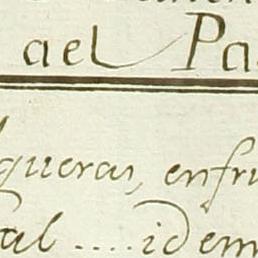 ael Pa
queras, enfru
al .... idem